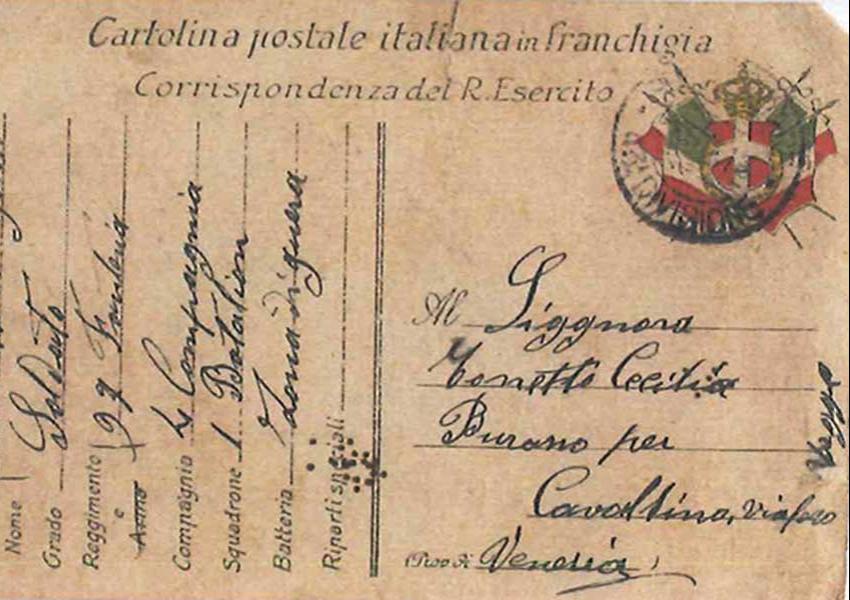 Cartolina postale italiana in franchigia
Corrispondenza del R. Esercito
DIVISIONE
Nome
Grado Soldato
Reggimento 97 Fanteria
e
Arma
Compagnia 4 Compagnia
Squadrone 1 Batalion
Batteria Zona di guera
Riparti speciali
Al Siggnora
Tonetto Cecilia
Burano per
Cavallino,
(Prov di Venesia)